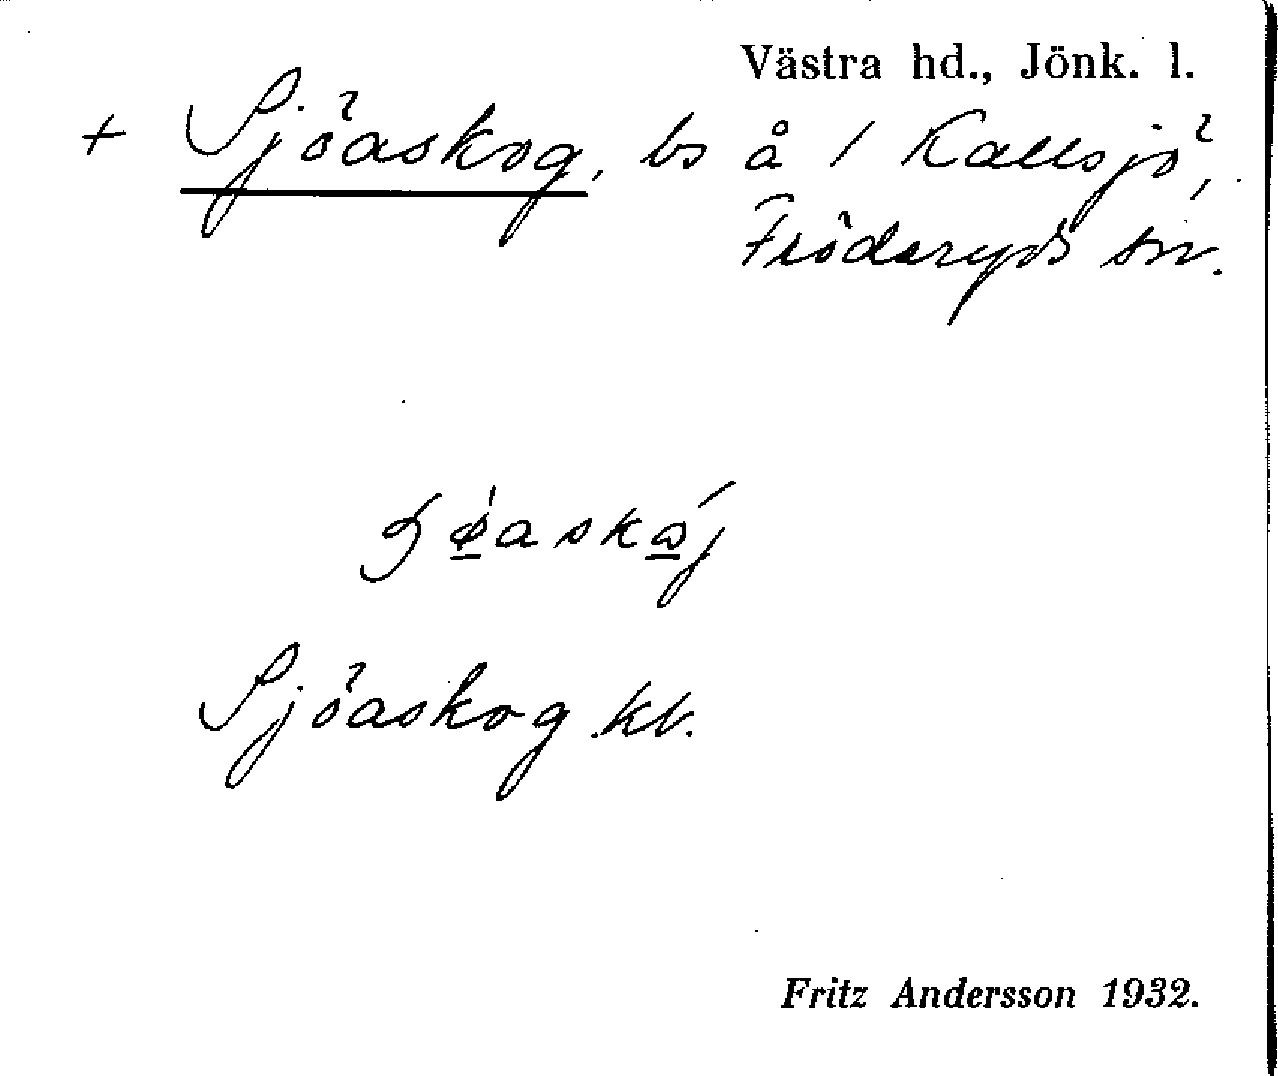 Västra hd., Jönk. l.
+ Sjöaskog, bs å / Kallsjö,
Fröderyds sn.
Sjöaskog kb.
Fritz Andersson 1932.